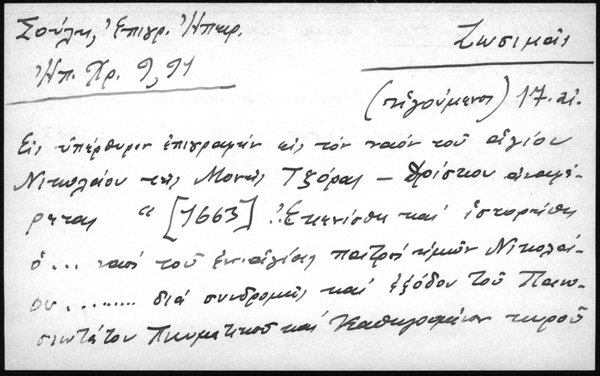 Σούλη, Ἐπιγρ. Ἠπειρ.
Ἠπ. Χρ. 9, 91
Ζωσιμᾶς
(ἡγούμενος) 17. αἰ.
Εἰς ὑπέρθυριν ἐπιγραφὴν εἰς τὸν ναὸν τοῦ ἁγίου
Νικολάου τῆς Μονῆς Τζόρας – Θρίστου ἀναφέ-
ρεται "[1663] . Ἐκτίσθη καὶ ἱστορήθη
ὁ ... ναὸς τοῦ ἐν ἁγίοις πατρὸς ἡμῶν Νικολά-
ου ......... διὰ συνδρομῆς καὶ ἐξόδου τοῦ Πανο-
σιωτάτου Πνευματικοῦ καὶ Καθηγουμένου κυροῦ